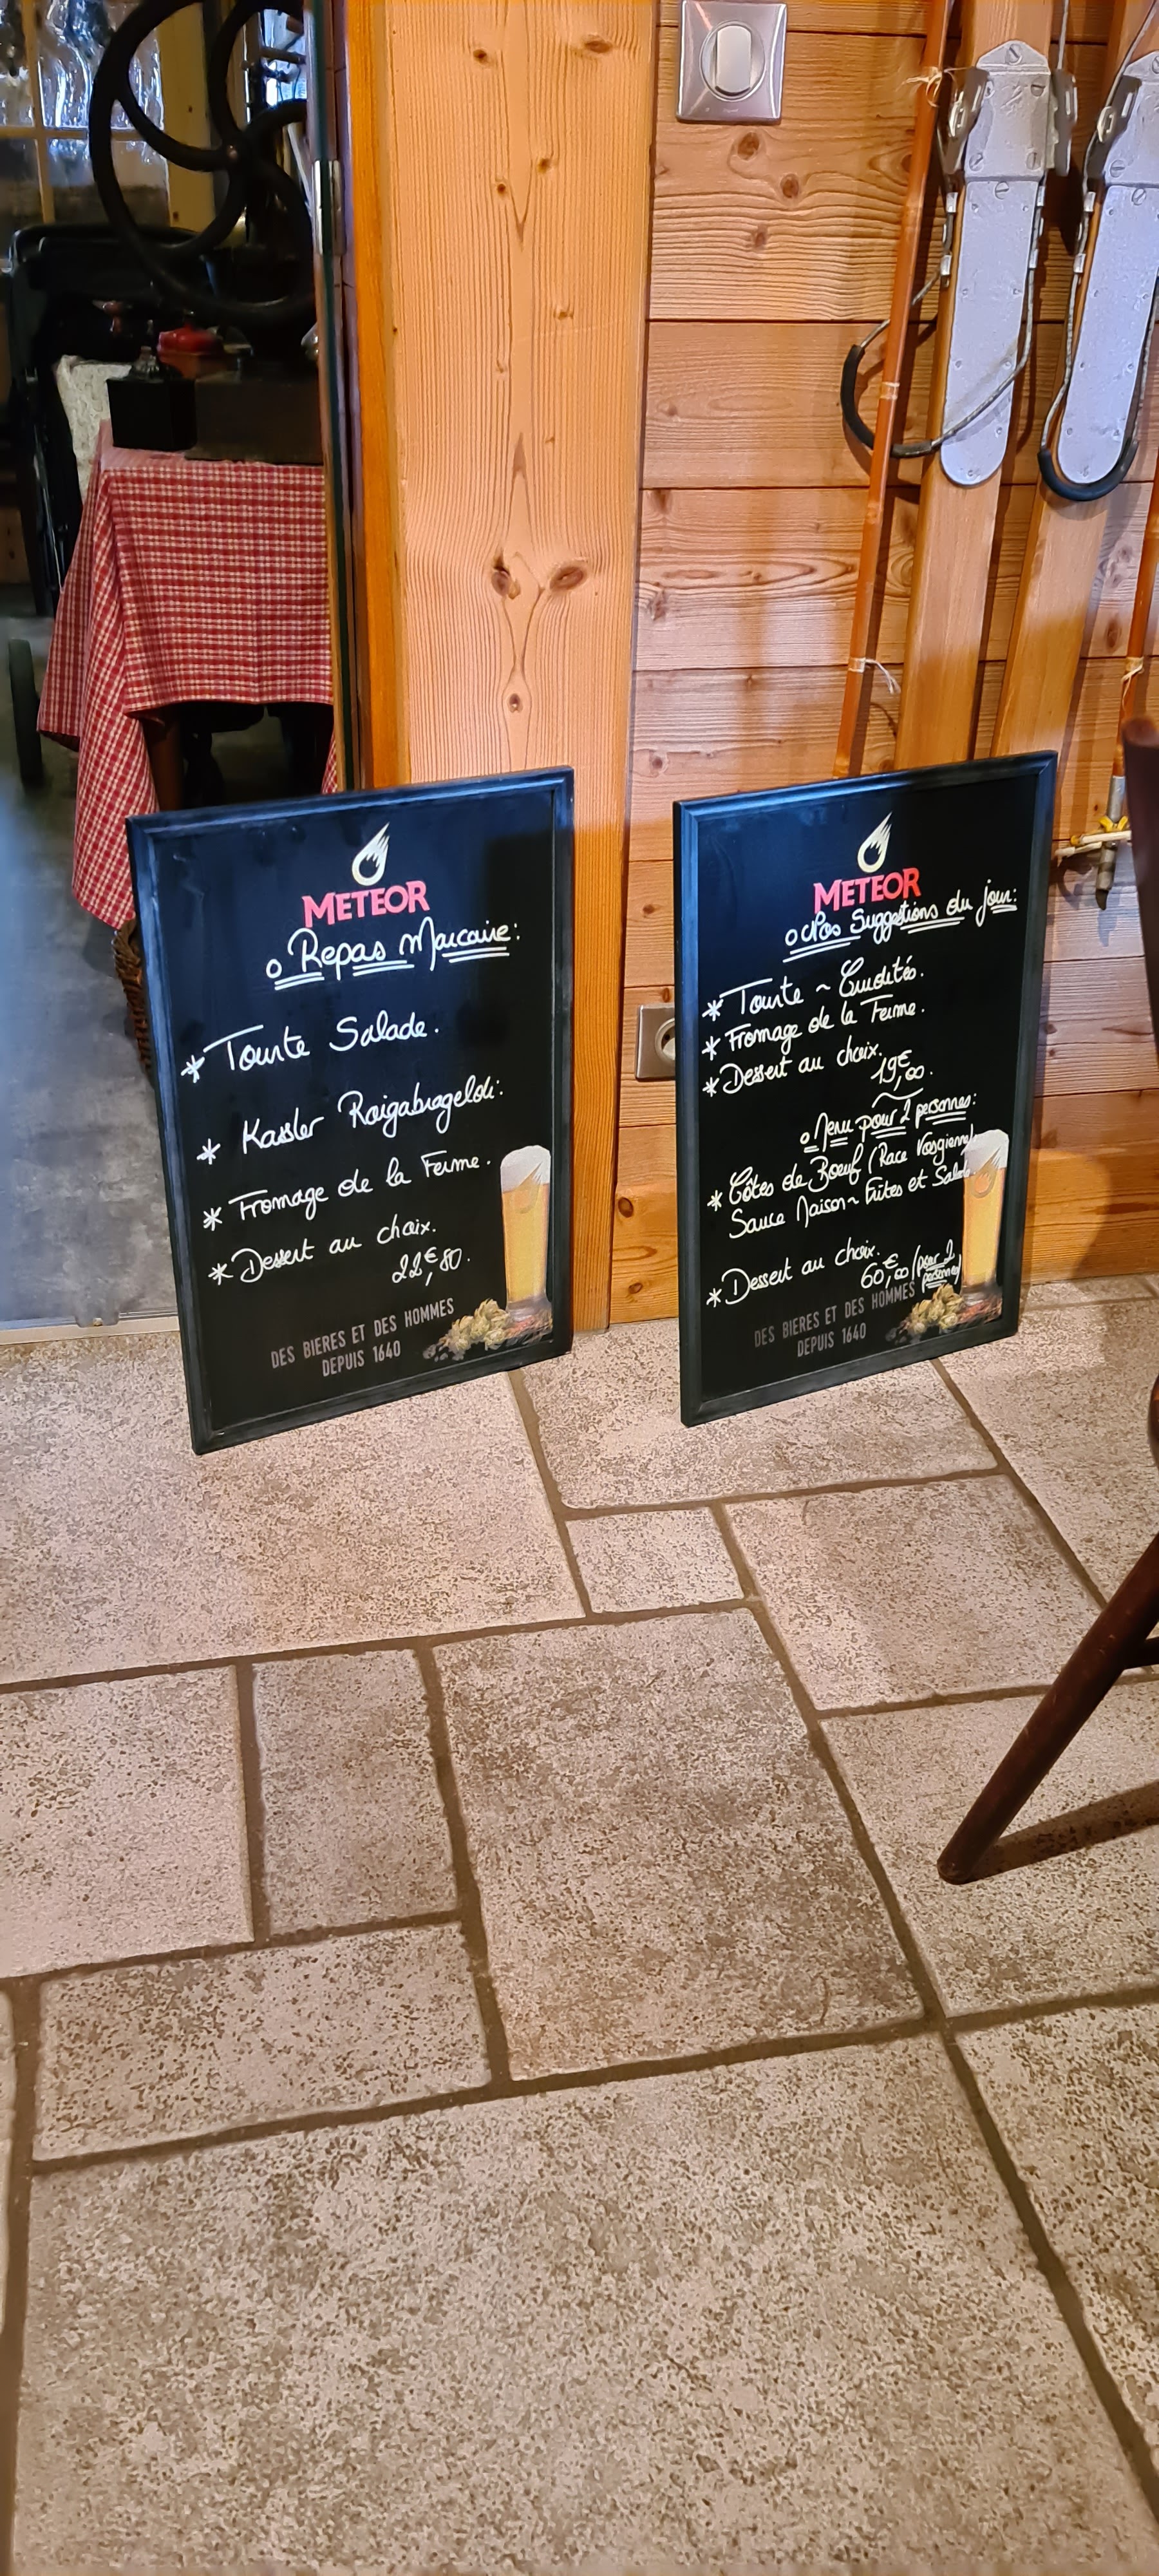 METEOR
o Repas Marcaire:
* Tourte Salade.
* Kassler Roigabrageldi:
* Fromage de la Ferme.
* Dessert au choix.
22€,80.
DES BIERES ET DES HOMMES
DEPUIS 1640
METEOR
o Nos Suggestions du jour:
* Tourte ~ Crudités.
* Fromage de la Ferme.
* Dessert au choix.
19€,00.
o Menu pour 2 personnes:
* Côtes de Boeuf (Race Vosgienne)
Sauce Maison ~ Frites et Salade.
* Dessert au choix.
60€,00 (pour 2
personnes)
DES BIERES ET DES HOMMES
DEPUIS 1640